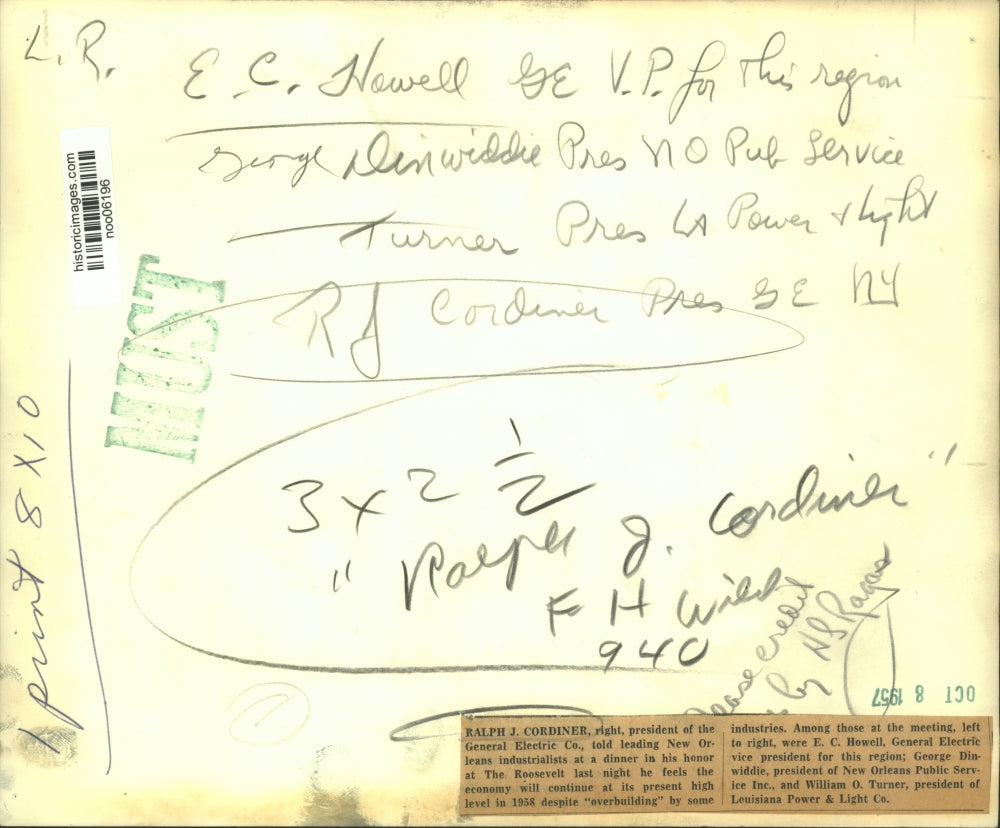 L. R.
E. C. Howell GE V.P. for this region
George Dinwiddie Pres NO Pub Service
Turner Pres LA Power & Light
RJ Cordiner Pres GE NY
historicimages.com
noo06196
1 print 8 X 10
3 x 2 1/2
"Ralph J. Cordiner"
F H
940
credit
by NS Ragas
OCT 8 1957
1
RALPH J. CORDINER, right, president of the
General Electric Co., told leading New Or-
leans industrialists at a dinner in his honor
at The Roosevelt last night he feels the
economy will continue at its present high
level in 1958 despite "overbuilding" by some
industries. Among those at the meeting, left
to right, were E. C. Howell, General Electric
vice president for this region; George Din-
widdie, president of New Orleans Public Serv-
ice Inc., and William O. Turner, president of
Louisiana Power & Light Co.